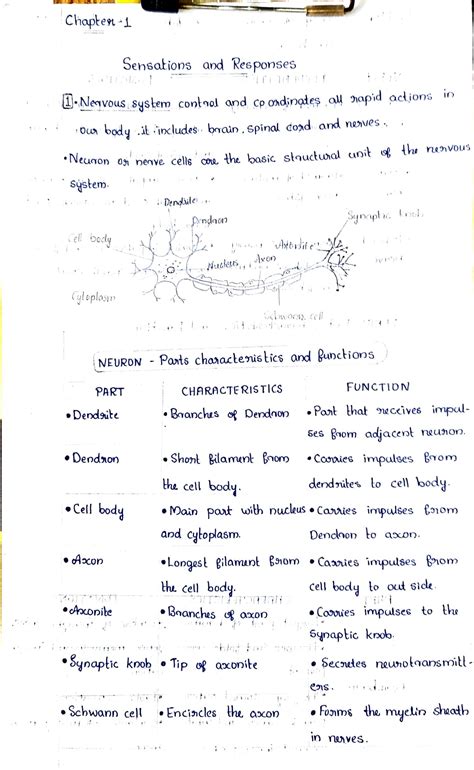 Chapter-1
Sensations and Responses
1. Nervous system control and coordinates all rapid actions in
our body. it includes brain, spinal cord and nerves.
• Neuron or nerve cells are the basic structural unit of the nervous
system.
Dendrite
Dendron
Synaptic knob
Cell body
Axonite
Nucleus
Axon
Cytoplasm
Schwann cell
NEURON - Parts characteristics and functions
PART CHARACTERISTICS FUNCTION
• Dendrite • Branches of Dendron • Part that receives impul-
ses from adjacent neuron.
• Dendron • Short filament from • Carries impulses from
the cell body. dendrites to cell body.
• Cell body • Main part with nucleus • Carries impulses from
and cytoplasm. Dendron to axon.
• Axon • Longest filament from • Carries impulses from
the cell body. cell body to out side.
• Axonite • Branches of axon • Carries impulses to the
Synaptic knob.
• Synaptic knob • Tip of axonite • Secretes neurotransmitt-
ers.
• Schwann cell • Encircles the axon • Forms the myelin sheath
in nerves.